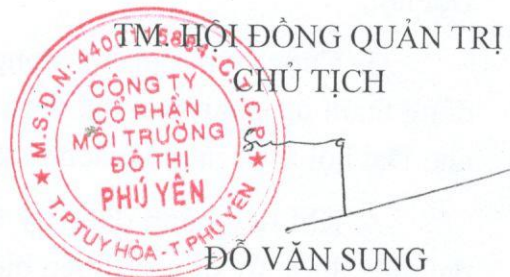 TM. HỘI ĐỒNG QUẢN TRỊ
CHỦ TỊCH
CÔNG TY
CỔ PHẦN
MÔI TRƯỜNG
ĐÔ THỊ
PHÚ YÊN
T.P TUY HÒA - T. PHÚ YÊN
ĐỖ VĂN SUNG